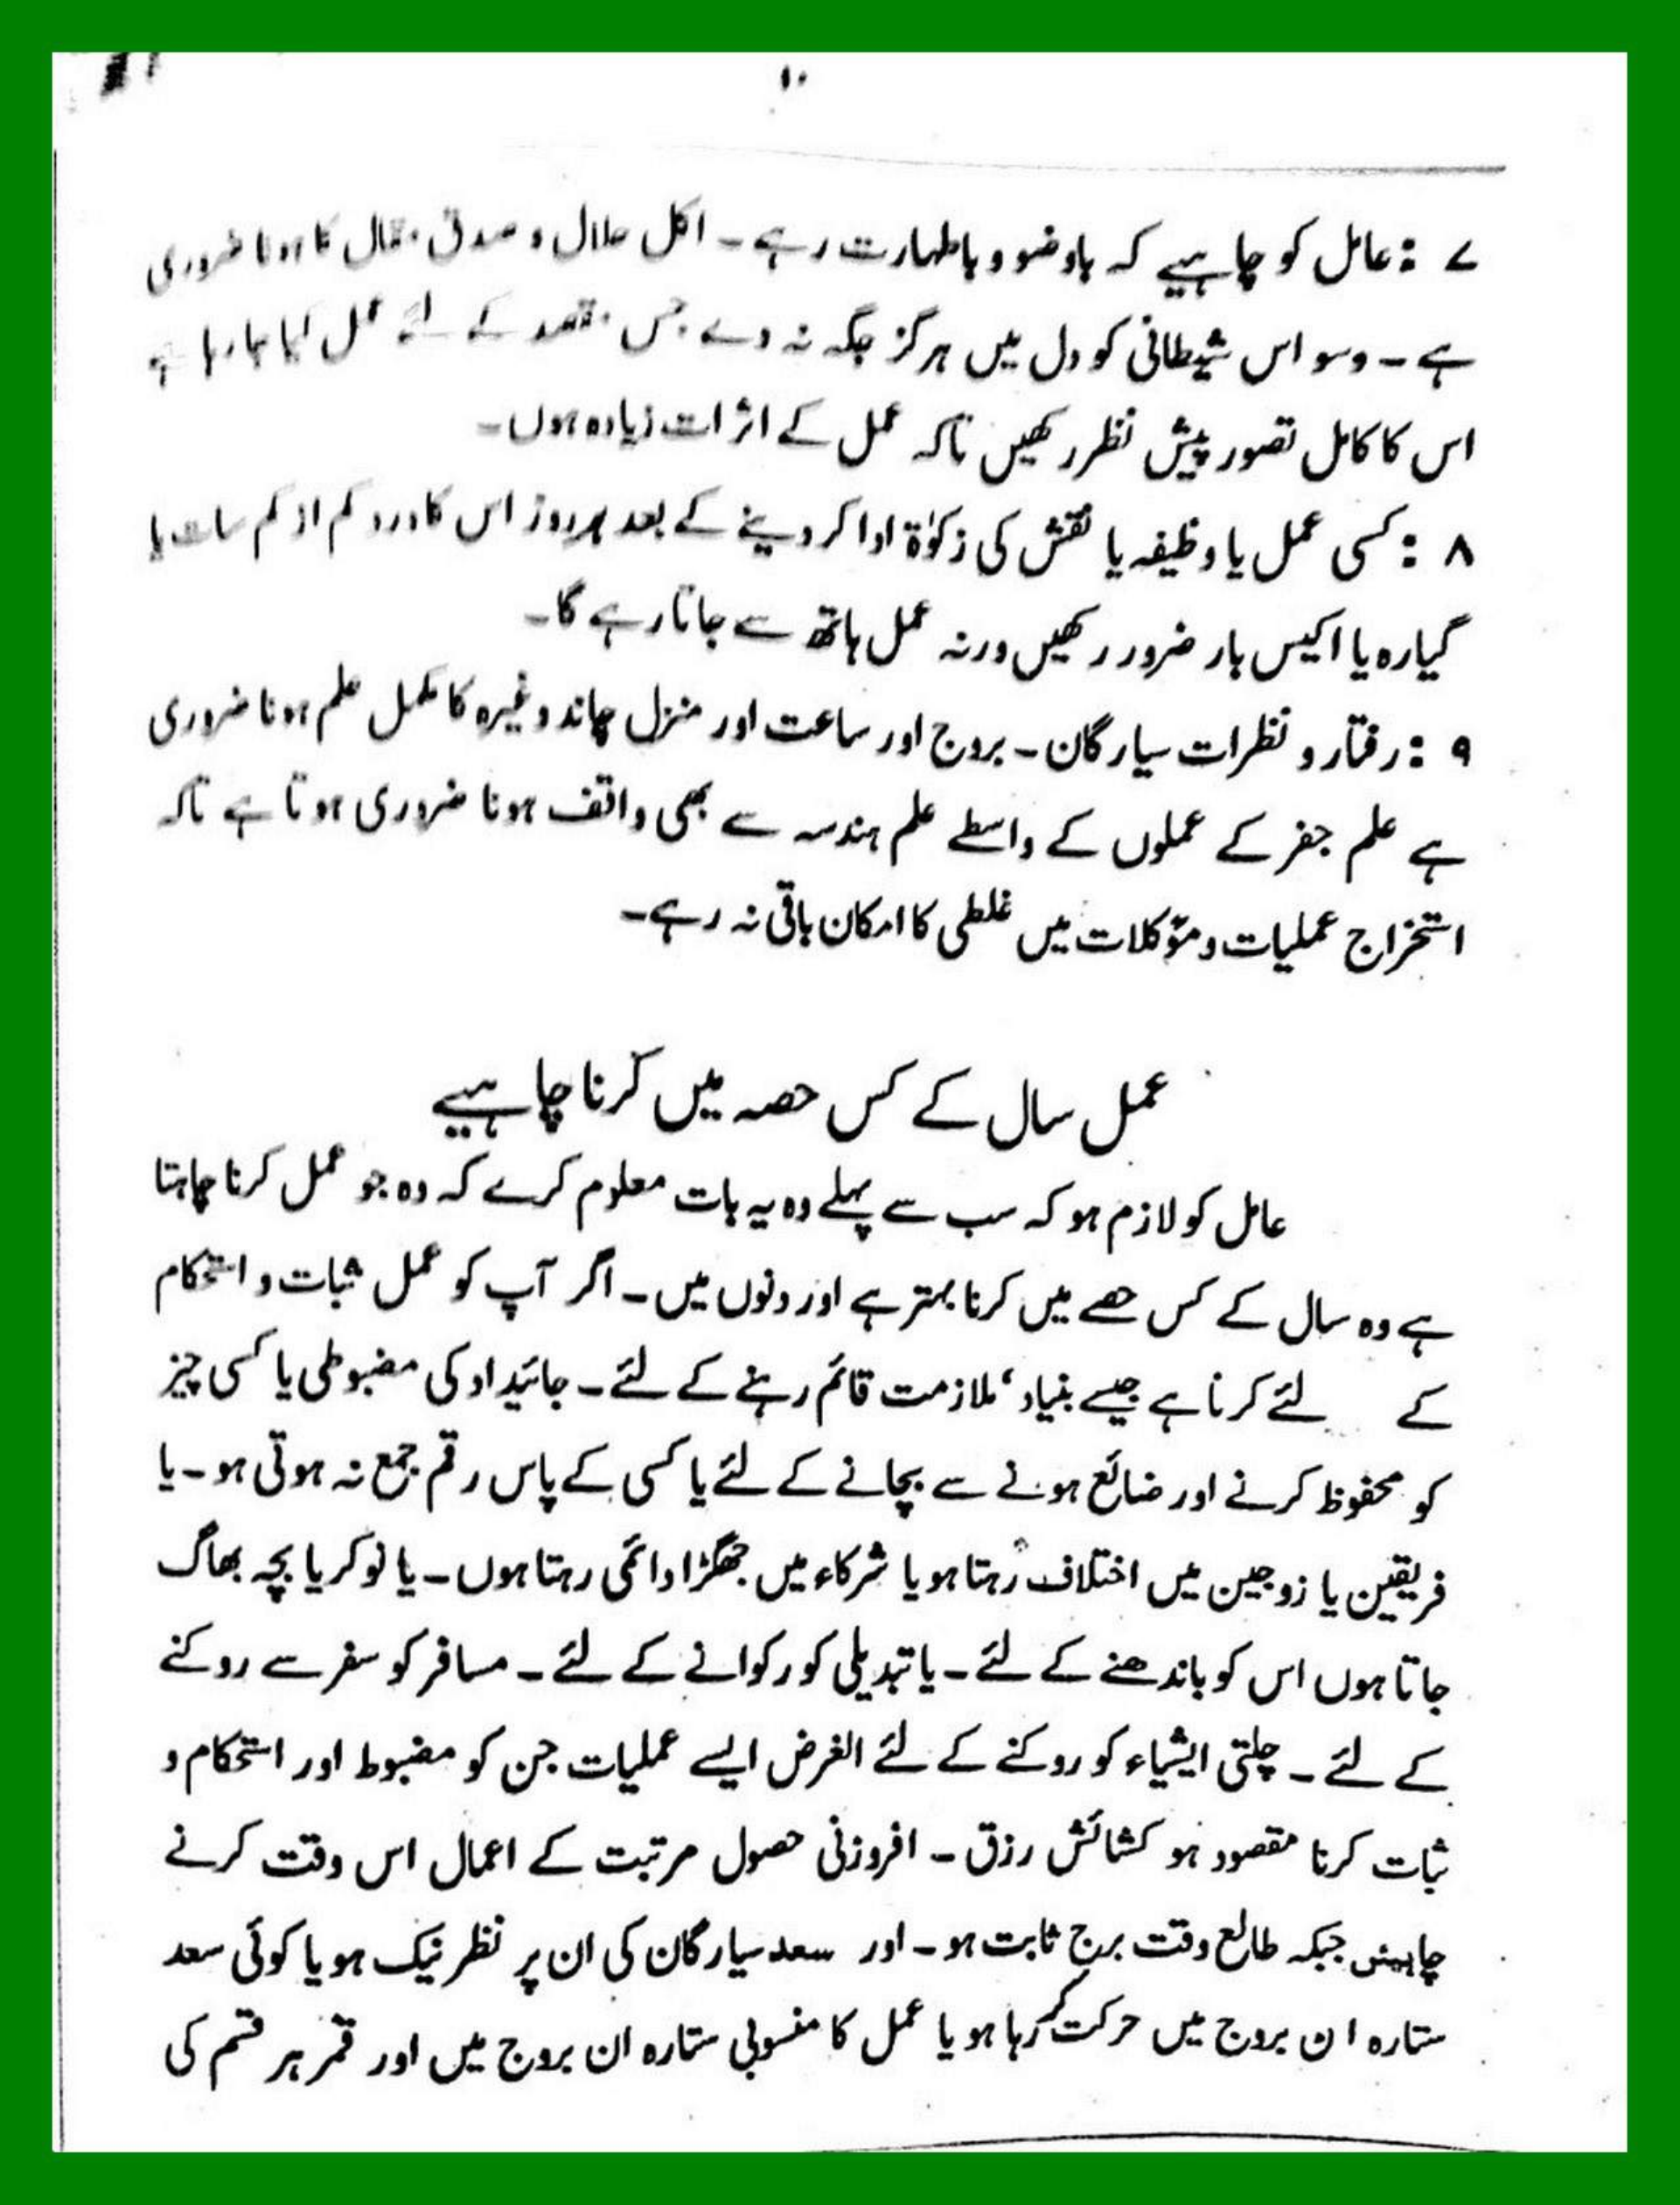 ۱۰
۷ : عامل کو چاہیے کہ باوضو و باطہارت رہے۔ اکل حلال و صدق مقال کا ہونا ضروری
ہے۔ وسواس شیطانی کو دل میں ہرگز جگہ نہ دے جس مقصد کے لئے عمل کیا جا رہا ہے
اس کا کامل تصور پیش نظر رکھیں تاکہ عمل کے اثرات زیادہ ہوں۔
۸ : کسی عمل یا وظیفہ یا نقش کی زکوٰۃ ادا کر دینے کے بعد ہر روز اس کا ورد کم از کم سات یا
گیارہ یا اکیس بار ضرور رکھیں ورنہ عمل ہاتھ سے جاتا رہے گا۔
۹ : رفتار و نظرات سیارگان۔ بروج اور ساعت اور منزل چاند وغیرہ کا مکمل علم ہونا ضروری
ہے علم جفر کے عملوں کے واسطے علم ہندسہ سے بھی واقف ہونا ضروری ہوتا ہے تاکہ
استخراج عملیات و مؤکلات میں غلطی کا امکان باقی نہ رہے۔
عمل سال کے کس حصہ میں کرنا چاہیے
عامل کو لازم ہو کہ سب سے پہلے وہ یہ بات معلوم کرے کہ وہ جو عمل کرنا چاہتا
ہے وہ سال کے کس حصے میں کرنا بہتر ہے اور دنوں میں۔ اگر آپ کو عمل ثبات و استحکام
کے لئے کرنا ہے جیسے بنیاد، ملازمت قائم رہنے کے لئے۔ جائیداد کی مضبوطی یا کسی چیز
کو محفوظ کرنے اور ضائع ہونے سے بچانے کے لئے یا کسی کے پاس رقم جمع نہ ہوتی ہو۔ یا
فریقین یا زوجین میں اختلاف رہتا ہو یا شرکاء میں جھگڑا دائمی رہتا ہوں۔ یا نوکر یا بچہ بھاگ
جاتا ہوں اس کو باندھنے کے لئے۔ یا تبدیلی کو رکوانے کے لئے۔ مسافر کو سفر سے روکنے
کے لئے۔ چلتی ایشیاء کو روکنے کے لئے الغرض ایسے عملیات جن کو مضبوط اور استحکام و
ثبات کرنا مقصود ہو کشائش رزق۔ افروزنی حصول مرتبت کے اعمال اس وقت کرنے
چاہیئں جبکہ طالع وقت برج ثابت ہو۔ اور سعد سیارگان کی ان پر نظر نیک ہو یا کوئی سعد
ستارہ ان بروج میں حرکت کر رہا ہو یا عمل کا منسوبی ستارہ ان بروج میں اور قمر ہر قسم کی